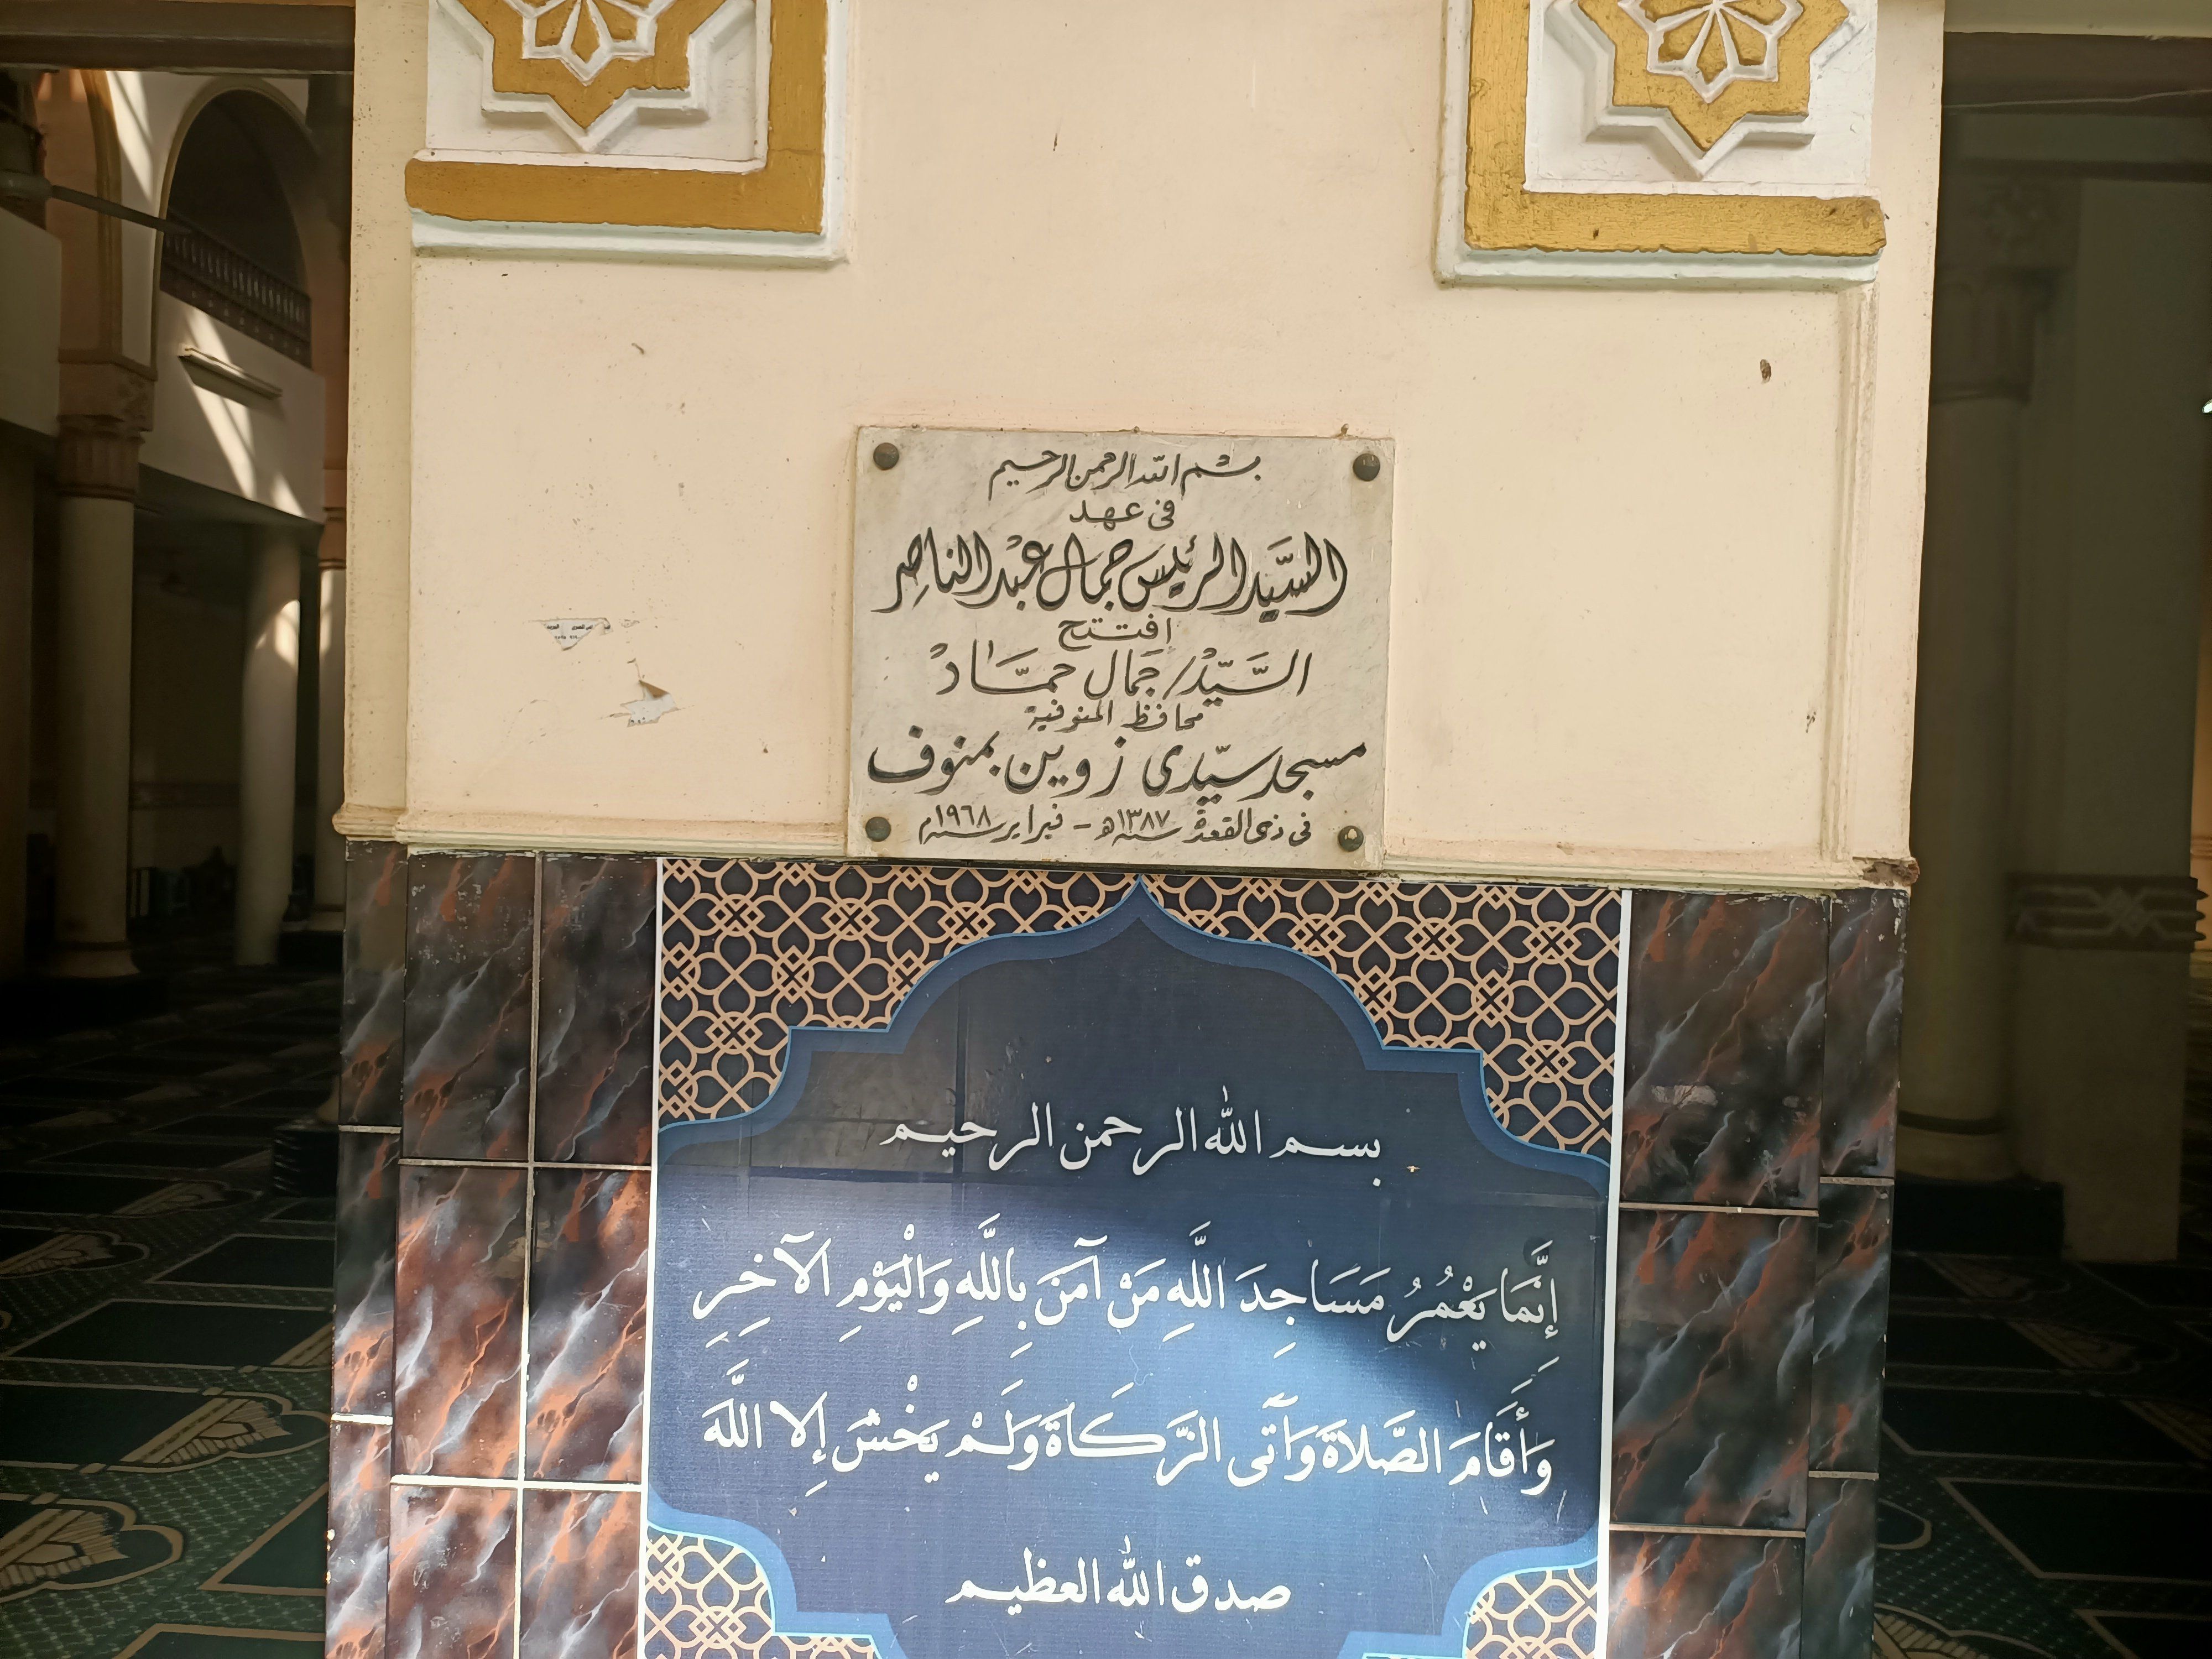 بسم الله الرحمن الرحيم
فى عهد
السَّيِّد الرئيس جمال عبْد الناصِر
افتتح
السَّيِّد / جمَال حمَّاد
محافظ المنوفية
مسجد سيِّدى زوين بمنوف
فى ذى القعدة سنة ١٣٨٧هـ - فبراير سنة ١٩٦٨م
بسم الله الرحمن الرحيم
إِنَّمَا يَعْمُرُ مَسَاجِدَ اللَّهِ مَنْ آمَنَ بِاللَّهِ وَالْيَوْمِ الآخِرِ
وَأَقَامَ الصَّلاةَ وَآتَى الزَّكَاةَ وَلَمْ يَخْشَ إِلا اللَّهَ
صدق الله العظيم